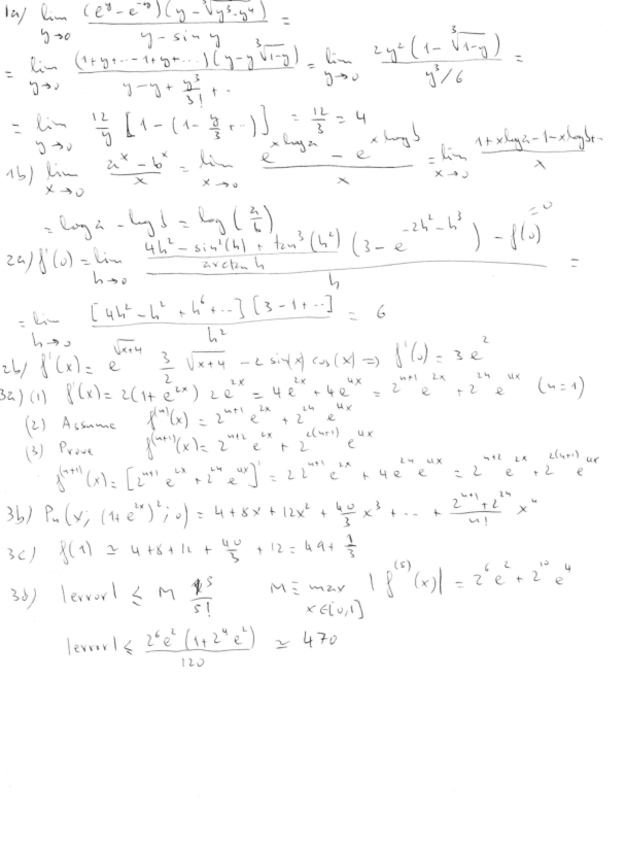 1a) lim y→0 (e^y − e^−y)(y − ∛(y³−y⁴)) / (y − sin y) =
= lim y→0 (1+y+...−1+y+...)(y−y ∛(1−y)) / (y−y+ y³/3! + ..) = lim y→0 2y²(1−∛(1−y)) / (y³/6) =
= lim y→0 12/y [1−(1−y/3+..)] = 12/3 = 4
1b) lim x→0 (a^x − b^x)/x = lim x→0 (e^(x log a) − e^(x log b))/x = lim x→0 (1+x log a−1−x log b+..)/x
= log a − log b = log (a/b)
2a) f'(0) = lim h→0 ((4h² − sin²(h) + tan³(h²))/(arctan h) (3 − e^(−2h²−h³)) − f(0))/h = =0
= lim h→0 [4h²−h²+h⁶+...][3−1+..]/h² = 6
2b) f'(x) = e^√(x+4) 3/2 √(x+4) − 2 sin(x) cos(x) ⇒ f'(0) = 3e²
3a) (1) f'(x) = 2(1+e^2x) 2e^2x = 4e^2x + 4e^4x = 2^(n+1) e^2x + 2^2n e^4x (n=1)
(2) Assume f^(n)(x) = 2^(n+1) e^2x + 2^2n e^4x
(3) Prove f^(n+1)(x) = 2^(n+2) e^2x + 2^2(n+1) e^4x
f^(n+1)(x) = [2^(n+1) e^2x + 2^2n e^4x]' = 2 2^(n+1) e^2x + 4 2^2n e^4x = 2^(n+2) e^2x + 2^2(n+1) e^4x
3b) Pn(x; (1+e^2x)²; 0) = 4+8x+12x² + 40/3 x³ + ... + (2^(n+1)+2^2n)/n! x^n
3c) f(1) ≃ 4+8+12+ 40/3 +12 = 49+ 1/3
3d) |error| ≤ M 1⁵/5! M ≡ max x∈[0,1] |f^(5)(x)| = 2⁶e² + 2¹⁰e⁴
|error| ≤ 2⁶e²(1+2⁴e²)/120 ≃ 470